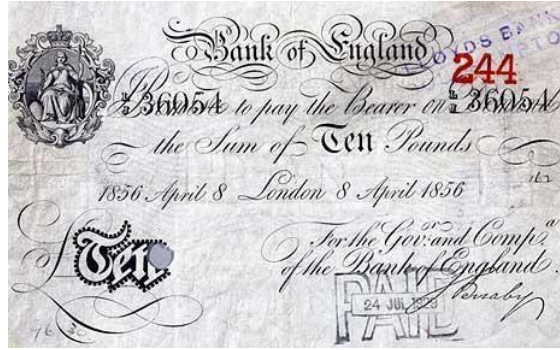 Bank of England
LLOYDS BANK
244
36054 to pay the Bearer on 36054
the Sum of Ten Pounds
1856 April 8 London 8 April 1856
162
£Ten
For the Govr. and Compa.
of the Bank of England
PAID
24 JUL